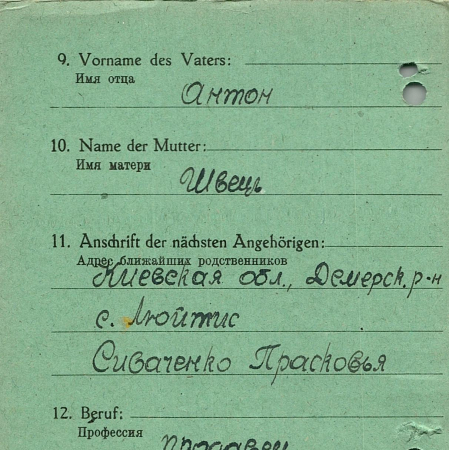 9. Vorname des Vaters:
Имя отца
Антон
10. Name der Mutter:
Имя матери
Швець
11. Anschrift der nächsten Angehörigen:
Адрес ближайших родственников
Киевская обл., Демерск. р-н
с. Лютиж
Сиваченко Прасковья
12. Beruf:
Профессия
продавец